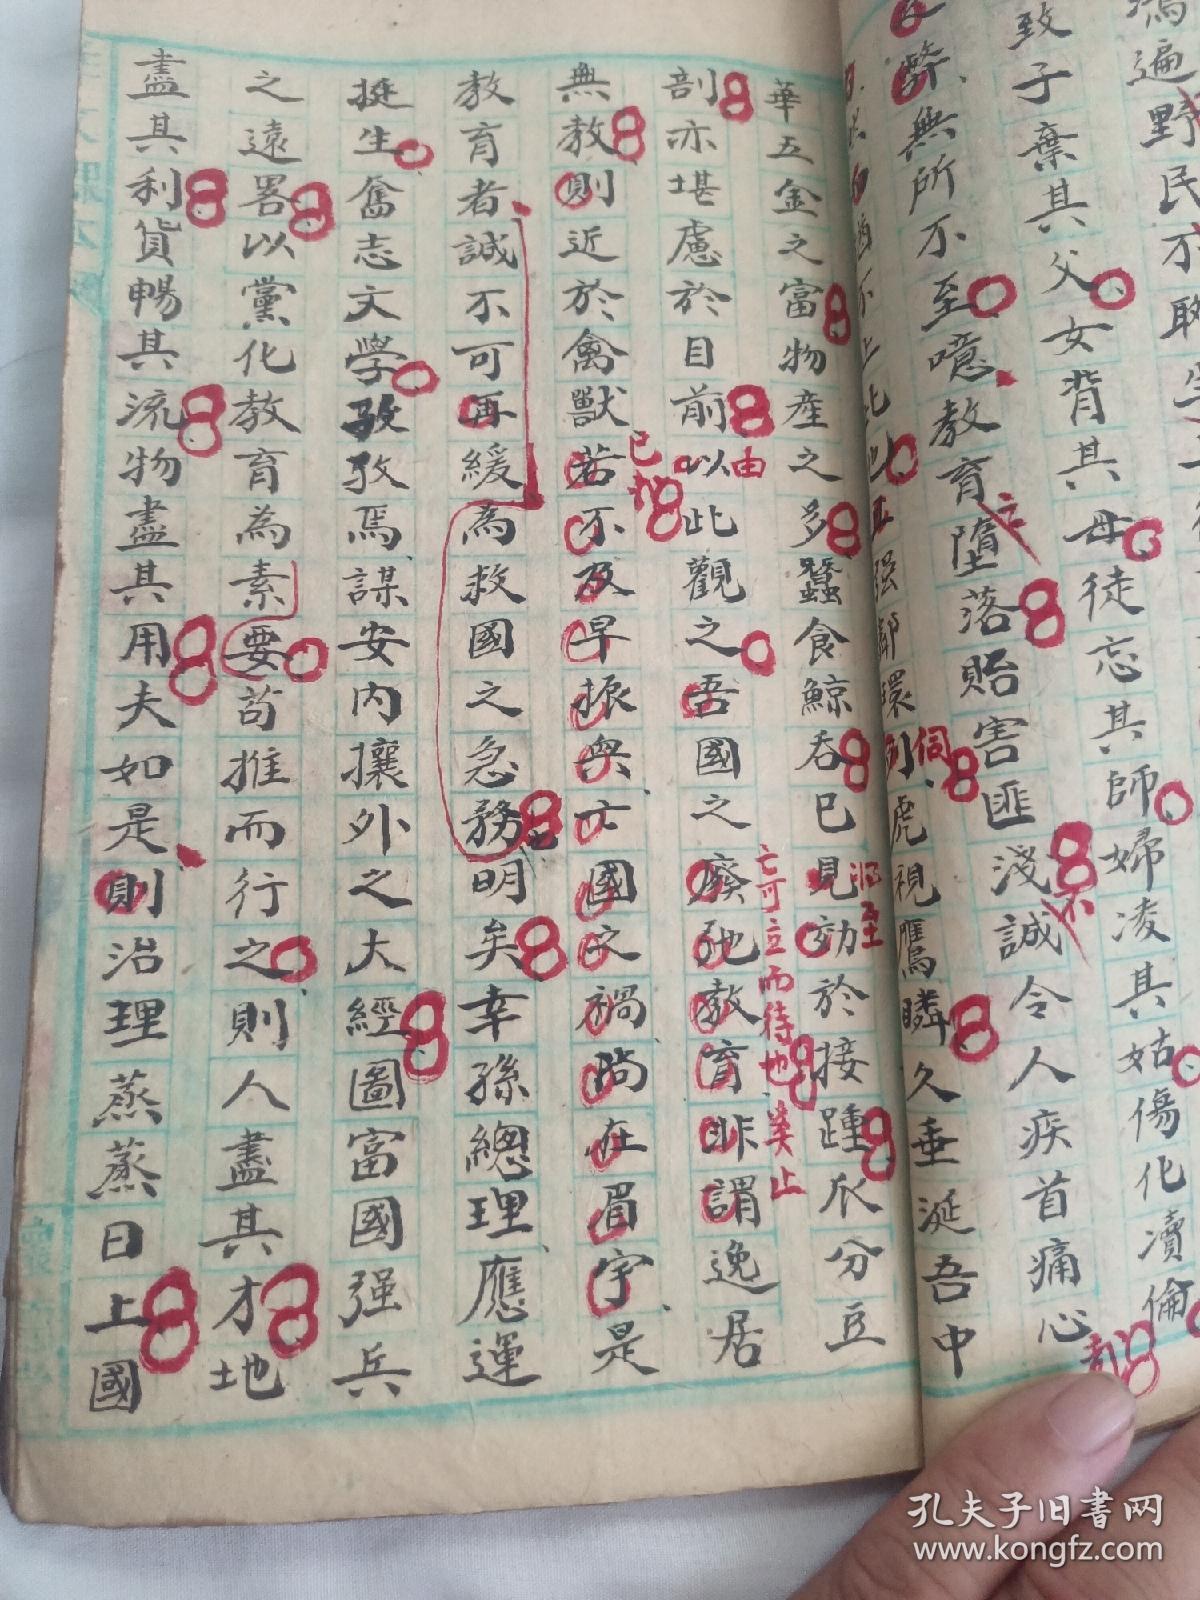 瀉遍野民不聊生
致子棄其父女背其母徒忘其師婦凌其姑傷化瀆倫
弊無所不至噫教育墮落貽害匪淺誠令人疾首痛心
强鄰環伺虎視鷹瞵久垂涎吾中
華五金之富物產之多蠶食鯨吞已見効於接踵瓜分豆
剖亦堪慮於目前以此觀之吾國之廢弛教育非謂逸居
無教則近於禽獸若不及早振興亡國之禍尚在眉宇是
教育者誠不可再緩為救國之急務明矣幸孫總理應運
挺生奮志文學孜孜焉謀安內攘外之大經圖富國强兵
之遠畧以黨化教育為素要苟推而行之則人盡其才地
盡其利貨暢其流物盡其用夫如是則治理蒸蒸日上國
亡可立而待也
已
由
至
孔夫子旧书网
www.kongfz.com